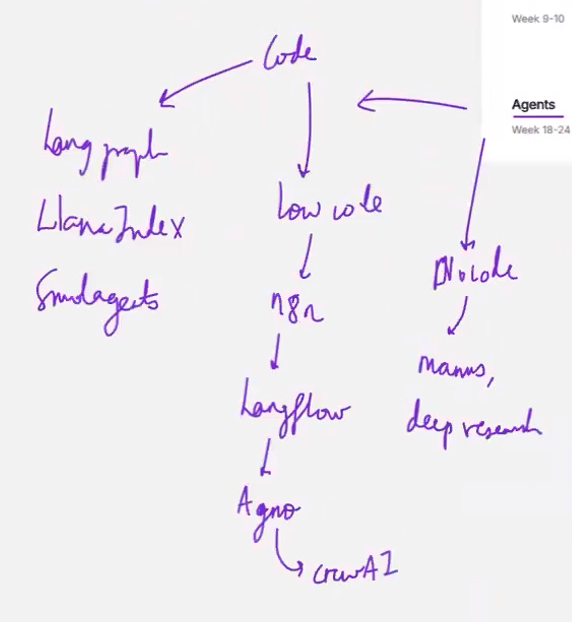 Week 9-10
Code
Agents
Week 18-24
Lang graph
LlamaIndex
Smolagents
Low code
n8n
Langflow
Agno
crewAI
No code
manus,
deep research